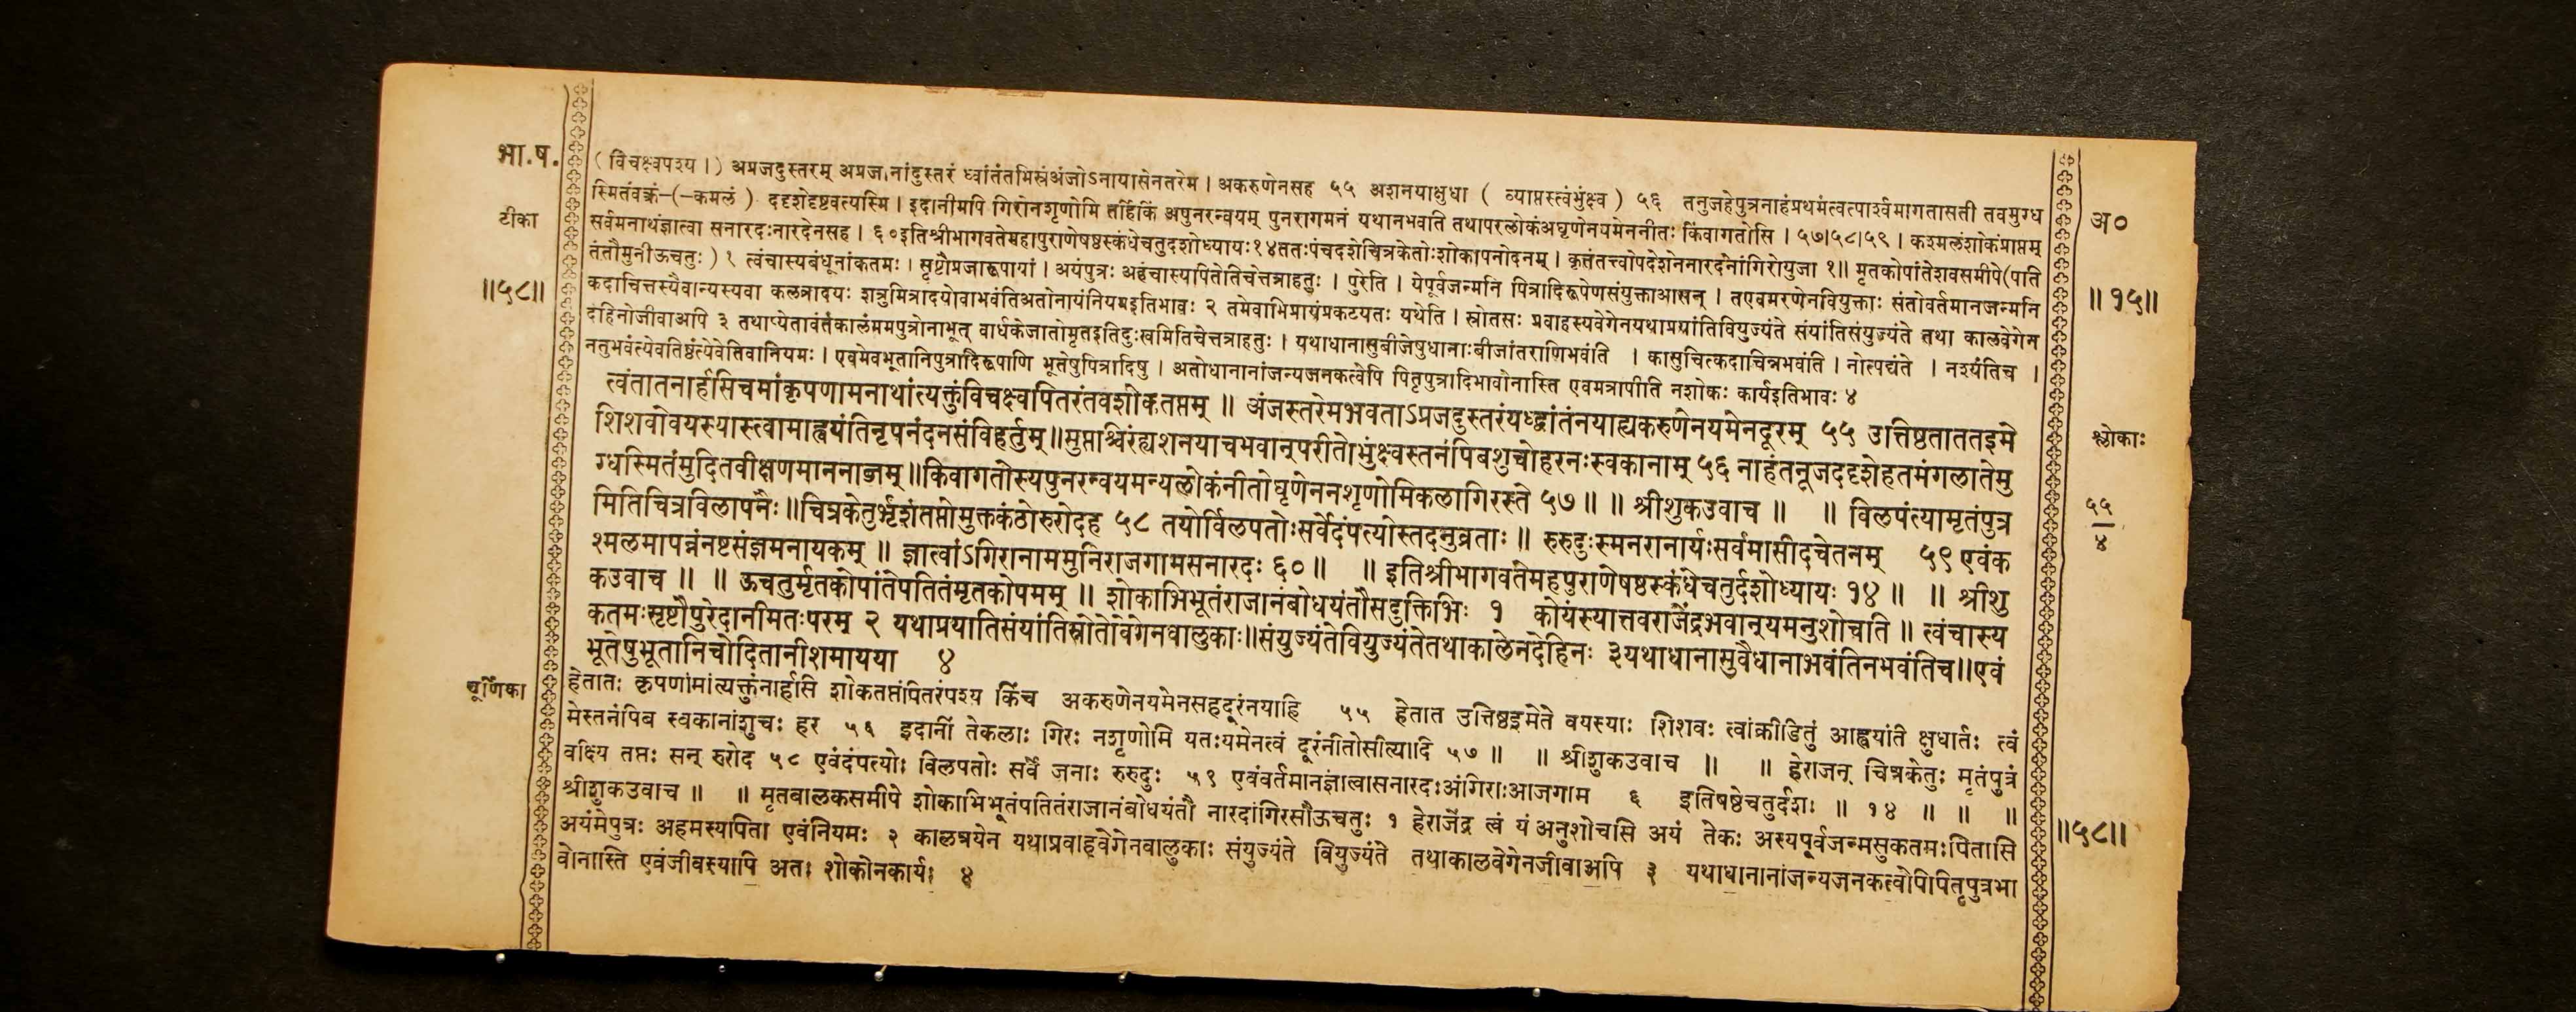 भा.ष.
टीका
॥५८॥
(विचक्ष्वपश्य।) अप्रजदुस्तरम् अप्रजानांदुस्तरं ध्वांतंतमिस्रंअंजोऽनायासेनतरेम । अकरुणेनसह ५५ अशनयाक्षुधा ( व्याप्तस्त्वंभुंक्ष्व ) ५६ तनुजहेपुत्रनाहंप्रथमंत्वत्पार्श्वमागतासती तवमुग्ध
स्मितंवक्त्रं-(-कमलं ) ददृशेदृष्टवत्यस्मि । इदानीमपि गिरोनशृणोमि तर्हिकिं अपुनरन्वयम् पुनरागमनं यथानभवति तथापरलोकंअघृणेनयमेननीतः किंवागतोसि । ५७।५८।५९ । कश्मलंशोकंप्राप्तम्
सर्वमनाथंज्ञात्वा सनारदःनारदेनसह । ६०इतिश्रीभागवतेमहापुराणेषष्ठस्कंधेचतुदशोध्यायः१४ततःपंचदशेचित्रकेतोःशोकापनोदनम् । कृतंतत्त्वोपदेशेननारदेनांगिरोयुजा १॥ मृतकोपांतेशवसमीपे(पति
तंतौमुनीऊचतुः) १ त्वंचास्यबंधूनांकतमः । सृष्टौप्रजारूपायां । अयंपुत्रः अहंचास्यपितेतिचेत्तत्राहतुः । पुरेति । येपूर्वजन्मनि पित्रादिरूपेणसंयुक्ताआसन् । तएवमरणेनवियुक्ताः संतोवर्तमानजन्मनि
कदाचित्तस्यैवान्यस्यवा कलत्रादयः शत्रुमित्रादयोवाभवंतिअतोनायंनियमइतिभावः २ तमेवाभिप्रायंप्रकटयतः यथेति । स्रोतसः प्रवाहस्यवेगेनयथाप्रयांतिवियुज्यंते संयांतिसंयुज्यंते तथा कालवेगेन
देहिनोजीवाअपि ३ तथाप्येतावंतंकालंममपुत्रोनाभूत् वार्धकेजातोमृतइतिदुःखमितिचेत्तत्राहतुः । यथाधानासुबीजेषुधानाःबीजांतराणिभवंति । कासुचित्कदाचिन्नभवंति । नोत्पद्यंते । नश्यंतिच ।
ननुभवंत्येवतिष्ठंत्येवेतिवानियमः । एवमेवभूतानिपुत्रादिरूपाणि भूतेषुपित्रादिषु । अतोधानानांजन्यजनकत्वेपि पितृपुत्रादिभावोनास्ति एवमत्रापीति नशोकः कार्यइतिभावः ४
त्वंतातनार्हसिचमांकृपणामनाथांत्यक्तुंविचक्ष्वपितरंतवशोकतप्तम् ॥ अंजस्तरेमभवताऽप्रजदुस्तरंयध्द्वांतंनयाह्यकरुणेनयमेनदूरम् ५५ उत्तिष्ठताततइमे
शिशवोवयस्यास्त्वामाह्वयंतिनृपनंदनसंविहर्तुम्॥सुप्तश्चिरंह्यशनयाचभवान्परीतोभुंक्ष्वस्तनंपिबशुचोहरनःस्वकानाम् ५६ नाहंतनूजददृशेहतमंगलातेमु
ग्धस्मितंमुदितवीक्षणमाननाब्जम्॥किंवागतोस्यपुनरन्वयमन्यलोकंनीतोघृणेननशृणोमिकलागिरस्ते ५७॥ ॥ श्रीशुकउवाच ॥ ॥ विलपंत्यामृतंपुत्र
मितिचित्रविलापनैः॥चित्रकेतुर्भृशंतप्तोमुक्तकंठोरुरोदह ५८ तयोर्विलपतोःसर्वेदंपत्योस्तदनुव्रताः ॥ रुरुदुःस्मनरानार्यःसर्वमासीदचेतनम् ५९ एवंक
श्मलमापन्नंनष्टसंज्ञमनायकम् ॥ ज्ञात्वांऽगिरानाममुनिराजगामसनारदः ६०॥ ॥ इतिश्रीभागवतेमहपुराणेषष्ठस्कंधेचतुर्दशोध्यायः १४ ॥ ॥ श्रीशु
कउवाच ॥ ॥ ऊचतुर्मृतकोपांतेपतितंमृतकोपमम् ॥ शोकाभिभूतंराजानंबोधयंतौसदुक्तिभिः १ कोयंस्यात्तवराजेंद्रभवान्यमनुशोचति ॥ त्वंचास्य
कतमःसृष्टौपुरेदानीमतःपरम् २ यथाप्रयांतिसंयांतिस्रोतोवेगेनवालुकाः॥संयुज्यंतेवियुज्यंतेतथाकालेनदेहिनः ३यथाधानासुवैधानाभवंतिनभवंतिच॥एवं
भूतेषुभूतानिचोदितानीशमायया ४
चूर्णिका
हेतात। कृपणांमांत्यक्तुंनार्हसि शोकतप्तंपितरंपश्य किंच अकरुणेनयमेनसहदूरंनयाहि ५५ हेतात उत्तिष्ठइमेते वयस्याः शिशवः त्वांक्रीडितुं आह्वयांति क्षुधार्तः त्वं
मेस्तनंपिब स्वकानांशुचः हर ५६ इदानीं तेकलाः गिरः नशृणोमि यतःयमेनत्वं दूरंनीतोसीत्यादि ५७ ॥ ॥ श्रीशुकउवाच ॥ ॥ हेराजन् चित्रकेतुः मृतंपुत्रं
वक्ष्यि तप्तः सन् रुरोद ५८ एवंदंपत्योः विलपतोः सर्वे जनाः रुरुदुः ५९ एवंवर्तमानंज्ञात्वासनारदःअंगिराःआजगाम ६ इतिषष्ठेचतुर्दशः ॥ १४ ॥ ॥ ॥
श्रीशुकउवाच ॥ ॥ मृतबालकसमीपे शोकाभिभूतंपतितंराजानंबोधयंतौ नारदांगिरसौऊचतुः १ हेराजेंद्र त्वं यं अनुशोचसि अयं तेकः अस्यपूर्वजन्मसुकतमःपितासि
अयंमेपुत्रः अहमस्यपिता एवंनियमः २ कालत्रयेन यथाप्रवाहवेगेनवालुकाः संयुज्यंते वियुज्यंते तथाकालवेगेनजीवाअपि ३ यथाधानानांजन्यजनकत्वोपिपितृपुत्रभा
वोनास्ति एवंजीवस्यापि अतः शोकोनकार्यः ४
अ०
॥१५॥
श्लोकाः
५५
४
॥५८॥